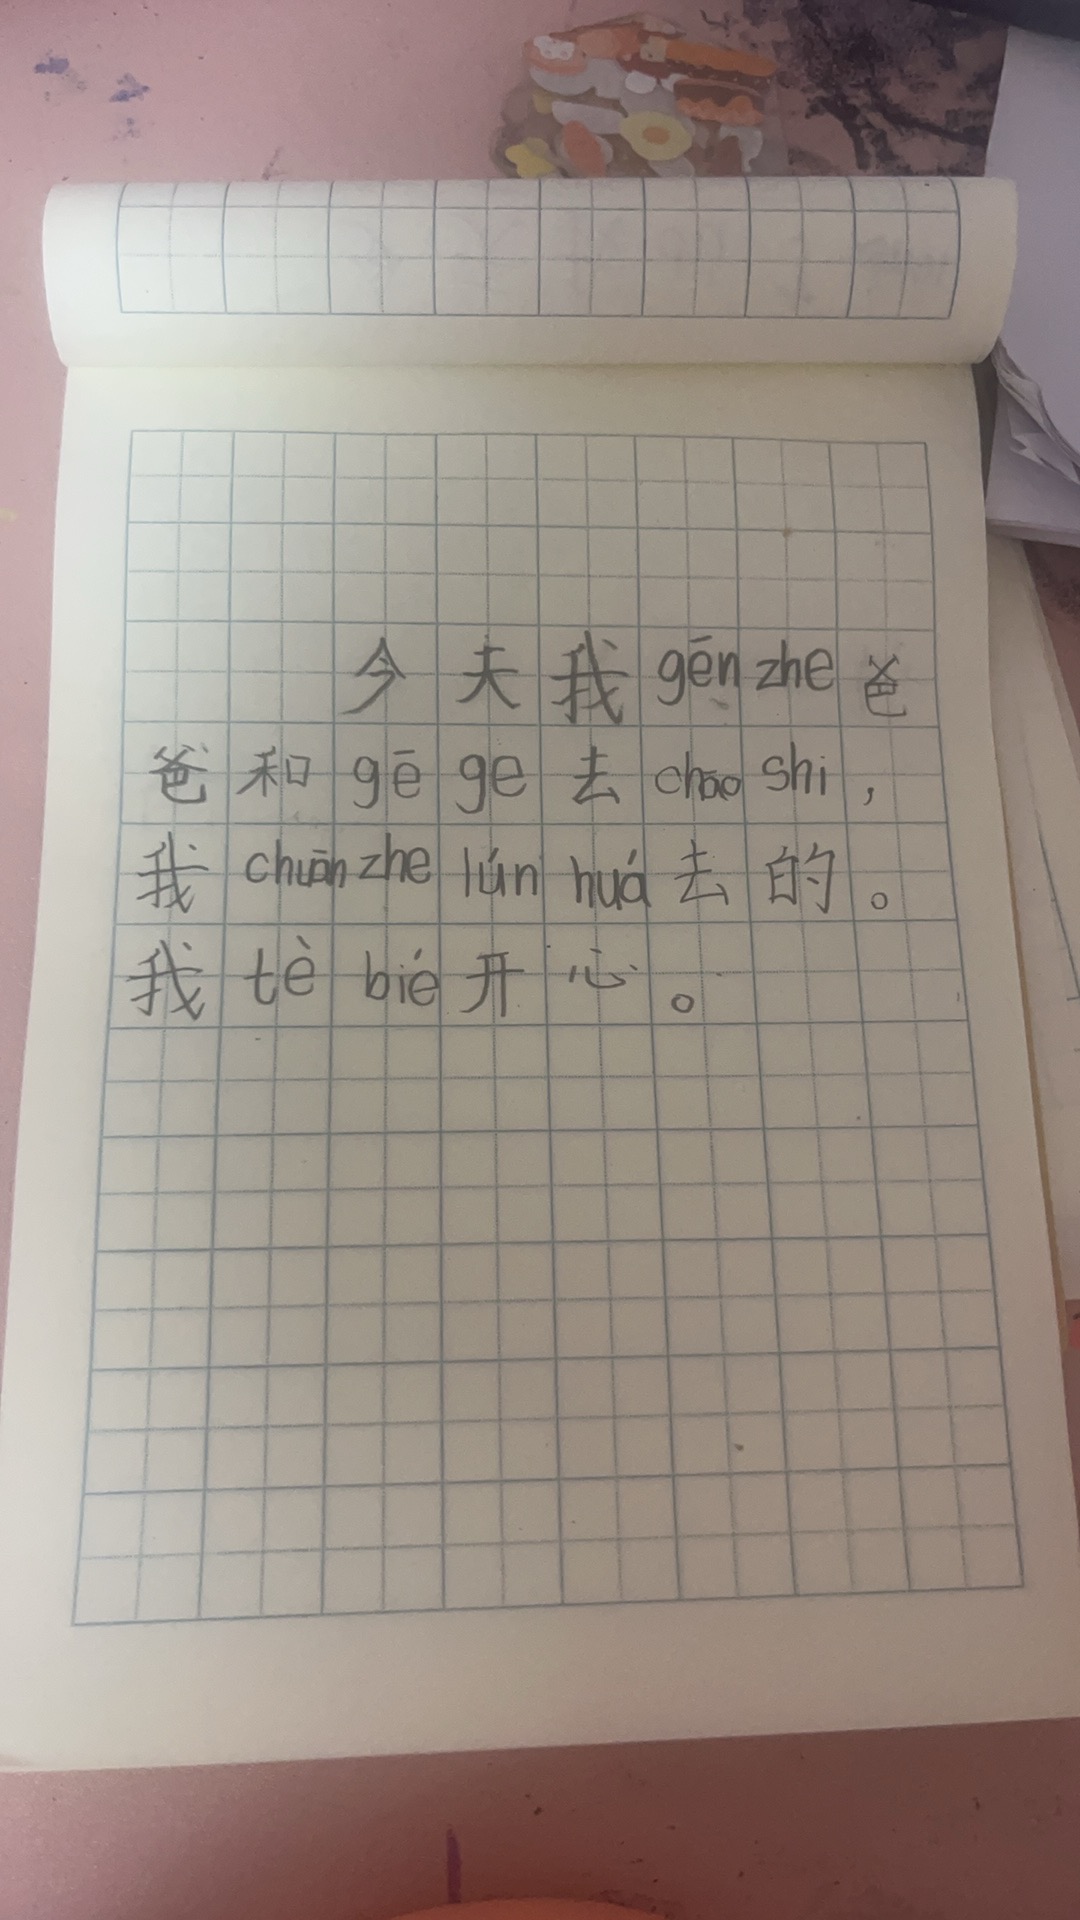 今天我gēn zhe爸
爸和gē ge去chāo shi,
我chuān zhe lún huá去的。
我tè bié开心。